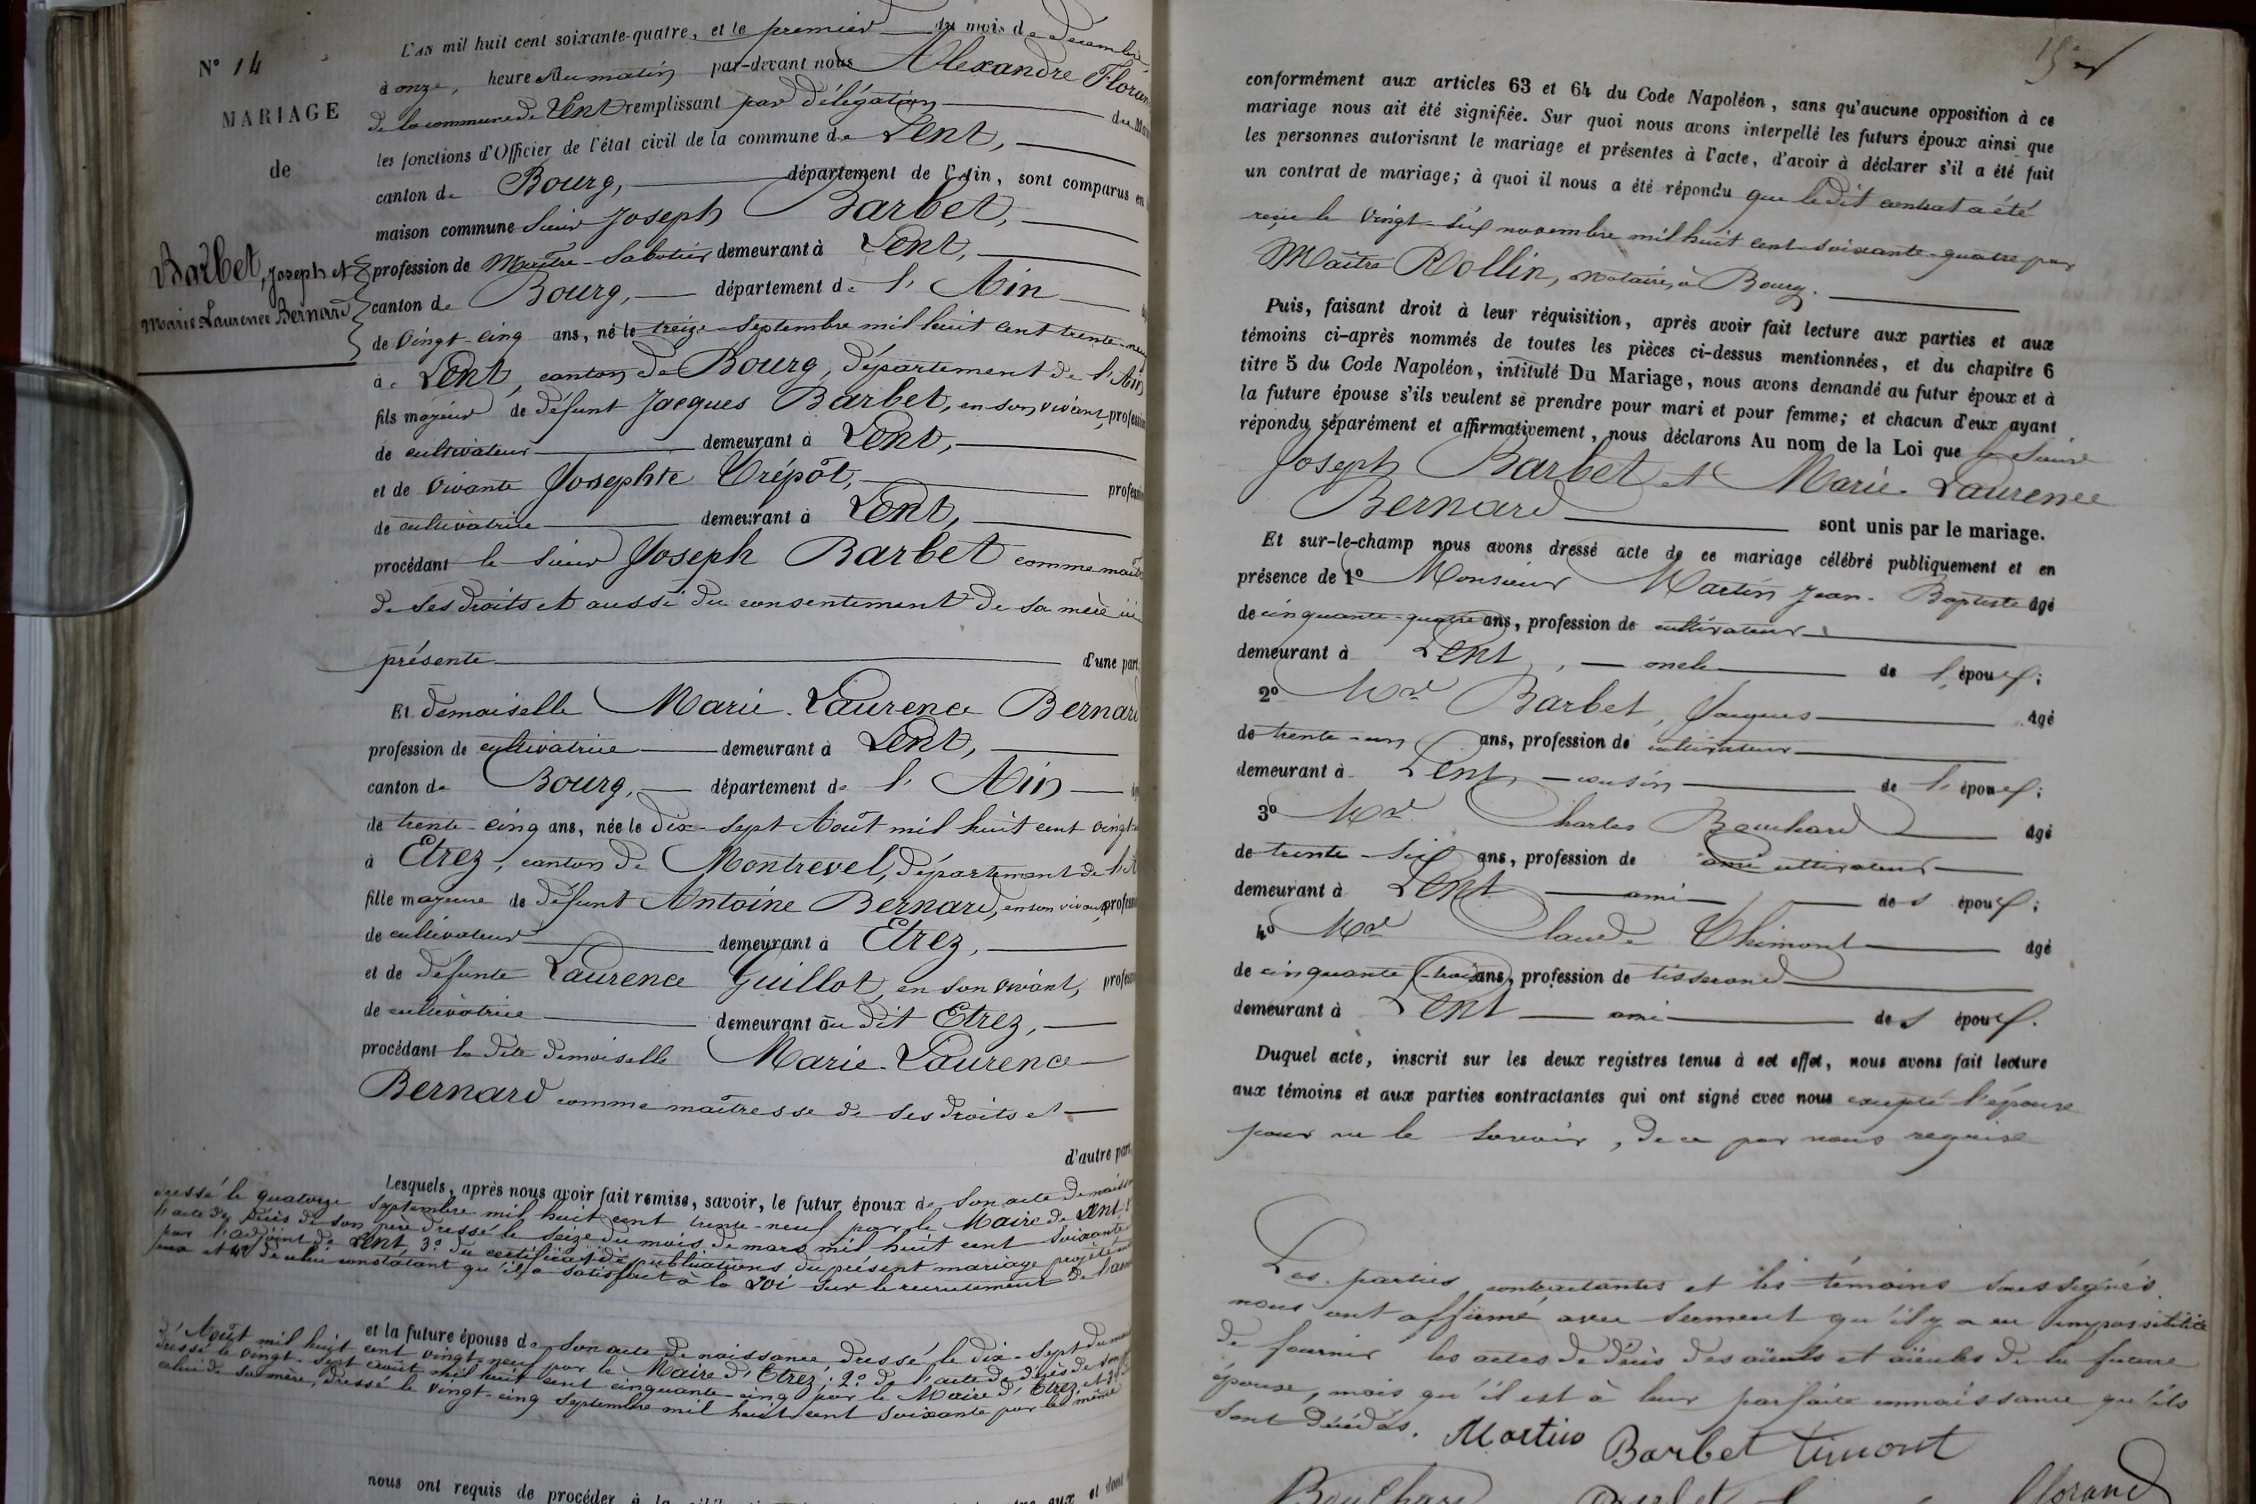 N° 14
MARIAGE
de
Barbet, Joseph et
Marie Laurence Bernard
L'an mil huit cent soixante-quatre, et le premier du mois de décembre
à onze, heure du matin par-devant nous Alexandre Floran
de la commune de Lent remplissant par délégation du
les fonctions d'Officier de l'état civil de la commune de Lent,
canton de Bourg, département de l'Ain, sont comparus en
maison commune Sieur Joseph Barbet,
profession de Maître-Sabotier demeurant à Lent,
canton de Bourg, département de l'Ain
de vingt-cinq ans, né le treize Septembre mil huit cent trente-neuf
à Lent, canton de Bourg, département de l'Ain
fils majeur de défunt Jacques Barbet, en son vivant, profession
de cultivateur demeurant à Lent,
et de vivante Josephte Trépôt, profession
de cultivatrice demeurant à Lent,
procédant le sieur Joseph Barbet comme maître
de ses droits et aussi du consentement de sa mère ici
présente d'une part.
Et demoiselle Marie Laurence Bernard
profession de cultivatrice demeurant à Lent,
canton de Bourg, département de l'Ain
de trente-cinq ans, née le dix-sept Août mil huit cent vingt
à Etrez, canton de Montrevel, département de l'A
fille majeure de défunt Antoine Bernard, en son vivant, profession
de cultivateur demeurant à Etrez,
et de défunte Laurence Guillot, en son vivant, profession
de cultivatrice demeurant au dit Etrez,
procédant la dite demoiselle Marie-Laurence
Bernard comme maîtresse de ses droits et
d'autre part.
Lesquels, après nous avoir fait remise, savoir, le futur époux de son acte de naissance
dressé le quatorze Septembre mil huit cent trente-neuf par le Maire de Lent,
l'acte de décès de son père dressé le seize du mois de mars mil huit cent soixante
par l'adjoint de Lent, 3° du certificat de publications du présent mariage projeté
et 4° de celui constatant qu'il a satisfait à la Loi sur le recrutement de l'armée
et la future épouse de son acte de naissance dressé le dix-sept du mois
d'Août mil huit cent vingt-neuf par le Maire d'Etrez; 2° de l'acte de décès de son
dressé le vingt-sept août mil huit cent cinquante-cinq par le Maire d'Etrez et 3°
celui de sa mère, dressé le vingt-cinq Septembre mil huit cent soixante par le même
nous ont requis de procéder à la
conformément aux articles 63 et 64 du Code Napoléon, sans qu'aucune opposition à ce
mariage nous ait été signifiée. Sur quoi nous avons interpellé les futurs époux ainsi que
les personnes autorisant le mariage et présentes à l'acte, d'avoir à déclarer s'il a été fait
un contrat de mariage; à quoi il nous a été répondu que le dit contrat a été
reçu le vingt-six novembre mil huit cent soixante-quatre par
Maître Rollin, notaire, à Bourg.
Puis, faisant droit à leur réquisition, après avoir fait lecture aux parties et aux
témoins ci-après nommés de toutes les pièces ci-dessus mentionnées, et du chapitre 6
titre 5 du Code Napoléon, intitulé Du Mariage, nous avons demandé au futur époux et à
la future épouse s'ils veulent se prendre pour mari et pour femme; et chacun d'eux ayant
répondu séparément et affirmativement, nous déclarons Au nom de la Loi que le Sieur
Joseph Barbet et Marie-Laurence
Bernard sont unis par le mariage.
Et sur-le-champ nous avons dressé acte de ce mariage célébré publiquement et en
présence de 1° Monsieur Martin Jean-Baptiste âgé
de cinquante-quatre ans, profession de cultivateur
demeurant à Lent, oncle de l'époux;
2° Mr Barbet, Jacques âgé
de trente-un ans, profession de cultivateur
demeurant à Lent, cousin de l'époux;
3° Mr Charles Bouchard âgé
de trente-six ans, profession de cultivateur
demeurant à Lent ami des époux;
4° Mr Claude Thimont âgé
de cinquante-trois ans, profession de tisserand
demeurant à Lent ami des époux.
Duquel acte, inscrit sur les deux registres tenus à cet effet, nous avons fait lecture
aux témoins et aux parties contractantes qui ont signé avec nous excepté l'épouse
pour ne le savoir, de ce par nous requise
Les parties contractantes et les témoins soussignés
nous ont affirmé avec serment qu'il y a eu impossibilité
de fournir les actes de décès des aïeuls et aïeules de la future
épouse, mais qu'il est à leur parfaite connaissance qu'ils
sont décédés. Martin Barbet timont
Bouchard Barbet Florand